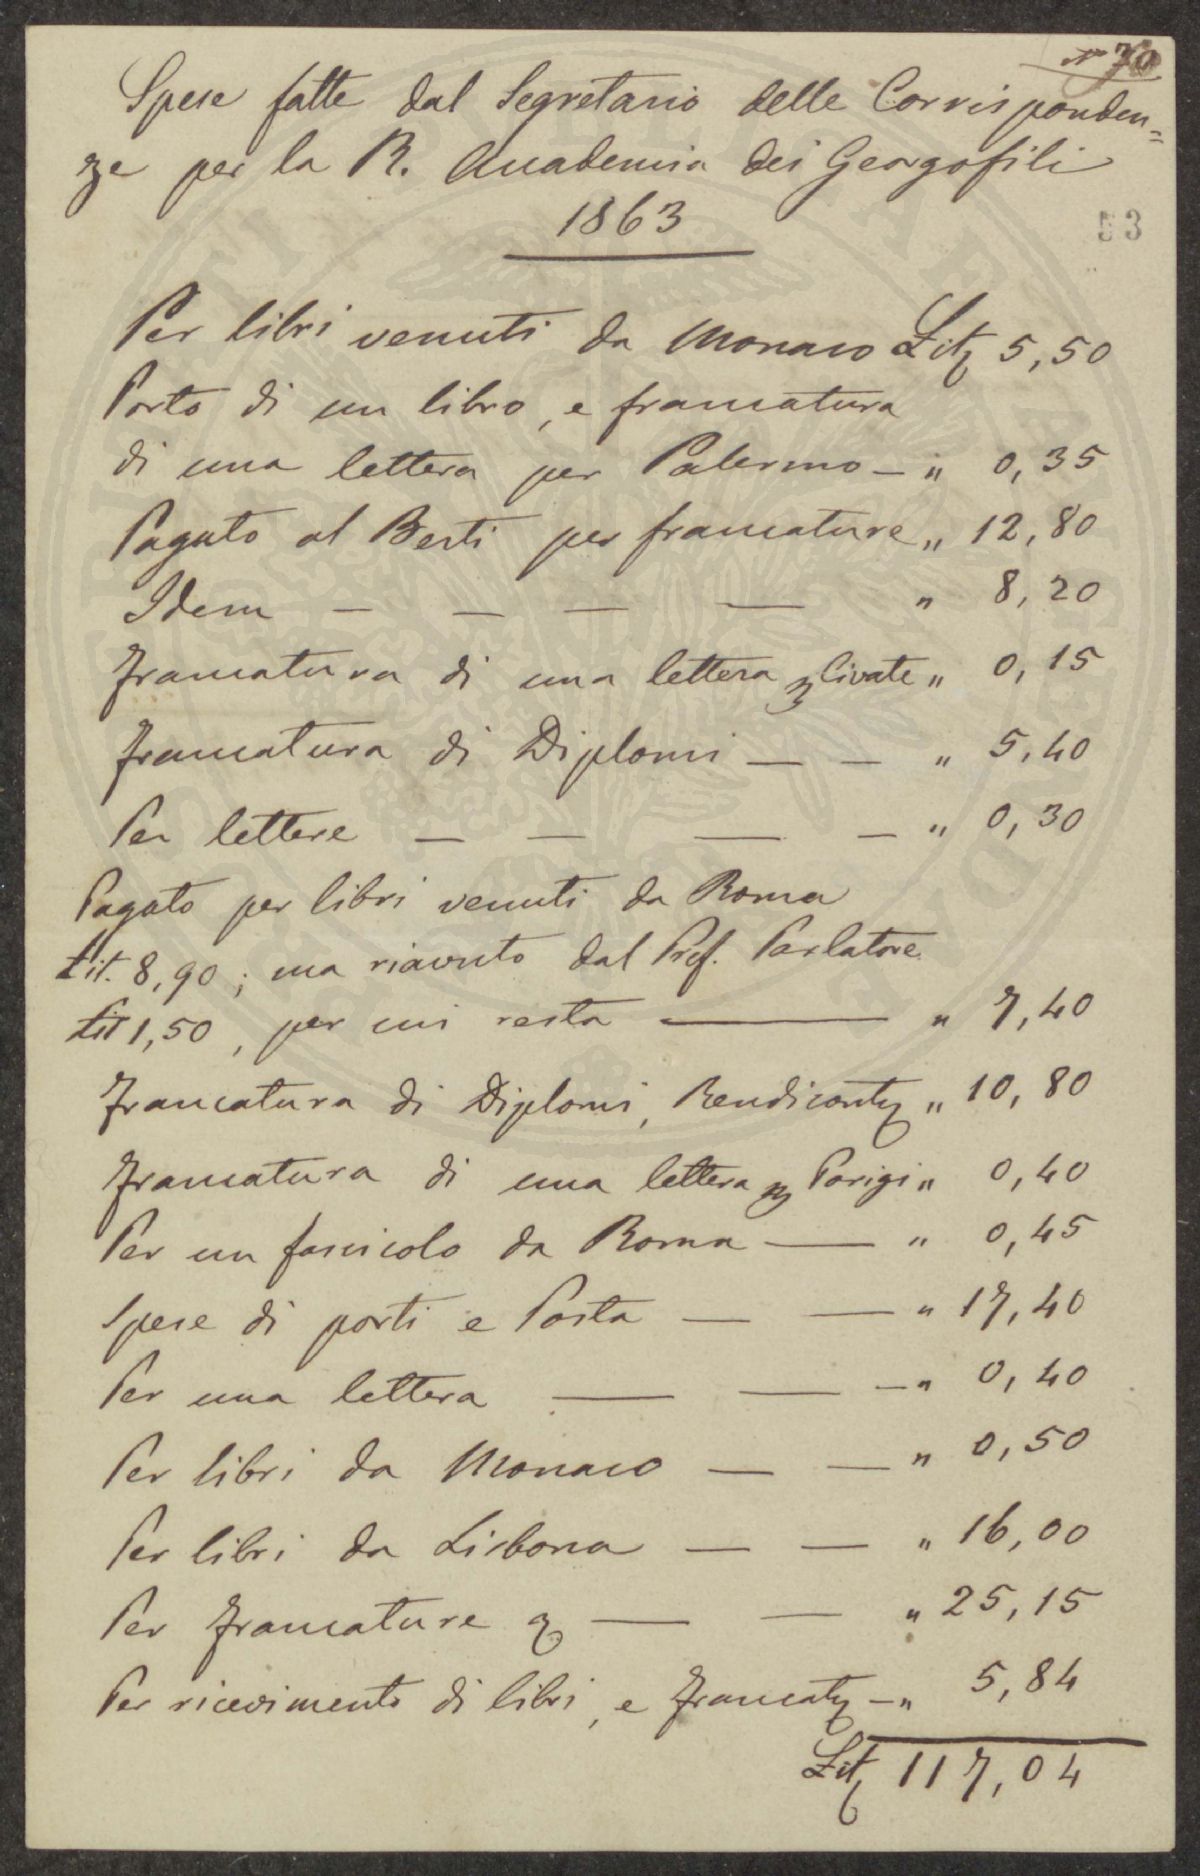 N° 70
Spese fatte dal Segretario delle Corrisponden=
ze per la R. Accademia dei Georgofili
1863
53
Per libri venuti da Monaco Lit 5,50
Porto di un libro, e francatura
di una lettera per Palermo — " 0,35
Pagato al Berti per francature " 12,80
Idem — — — — " 8,20
Francatura di una lettera p Civate " 0,15
Francatura di Diplomi — — " 5,40
Per lettere — — — — " 0,30
Pagato per libri venuti da Roma
Lit. 8,90; ma riavuto dal Prof. Parlatore
Lit 1,50, per cui resta — " 7,40
Francatura di Diplomi, Rendicont " 10,80
Francatura di una lettera p Parigi " 0,40
Per un fascicolo da Roma — " 0,45
Spese di porti e Posta — — " 17,40
Per una lettera — — — " 0,40
Per libri da Monaco — — " 0,50
Per libri da Lisbona — — " 16,00
Per Francature — — " 25,15
Per ricevimento di libri, e Francat — " 5,84
Lit 117,04